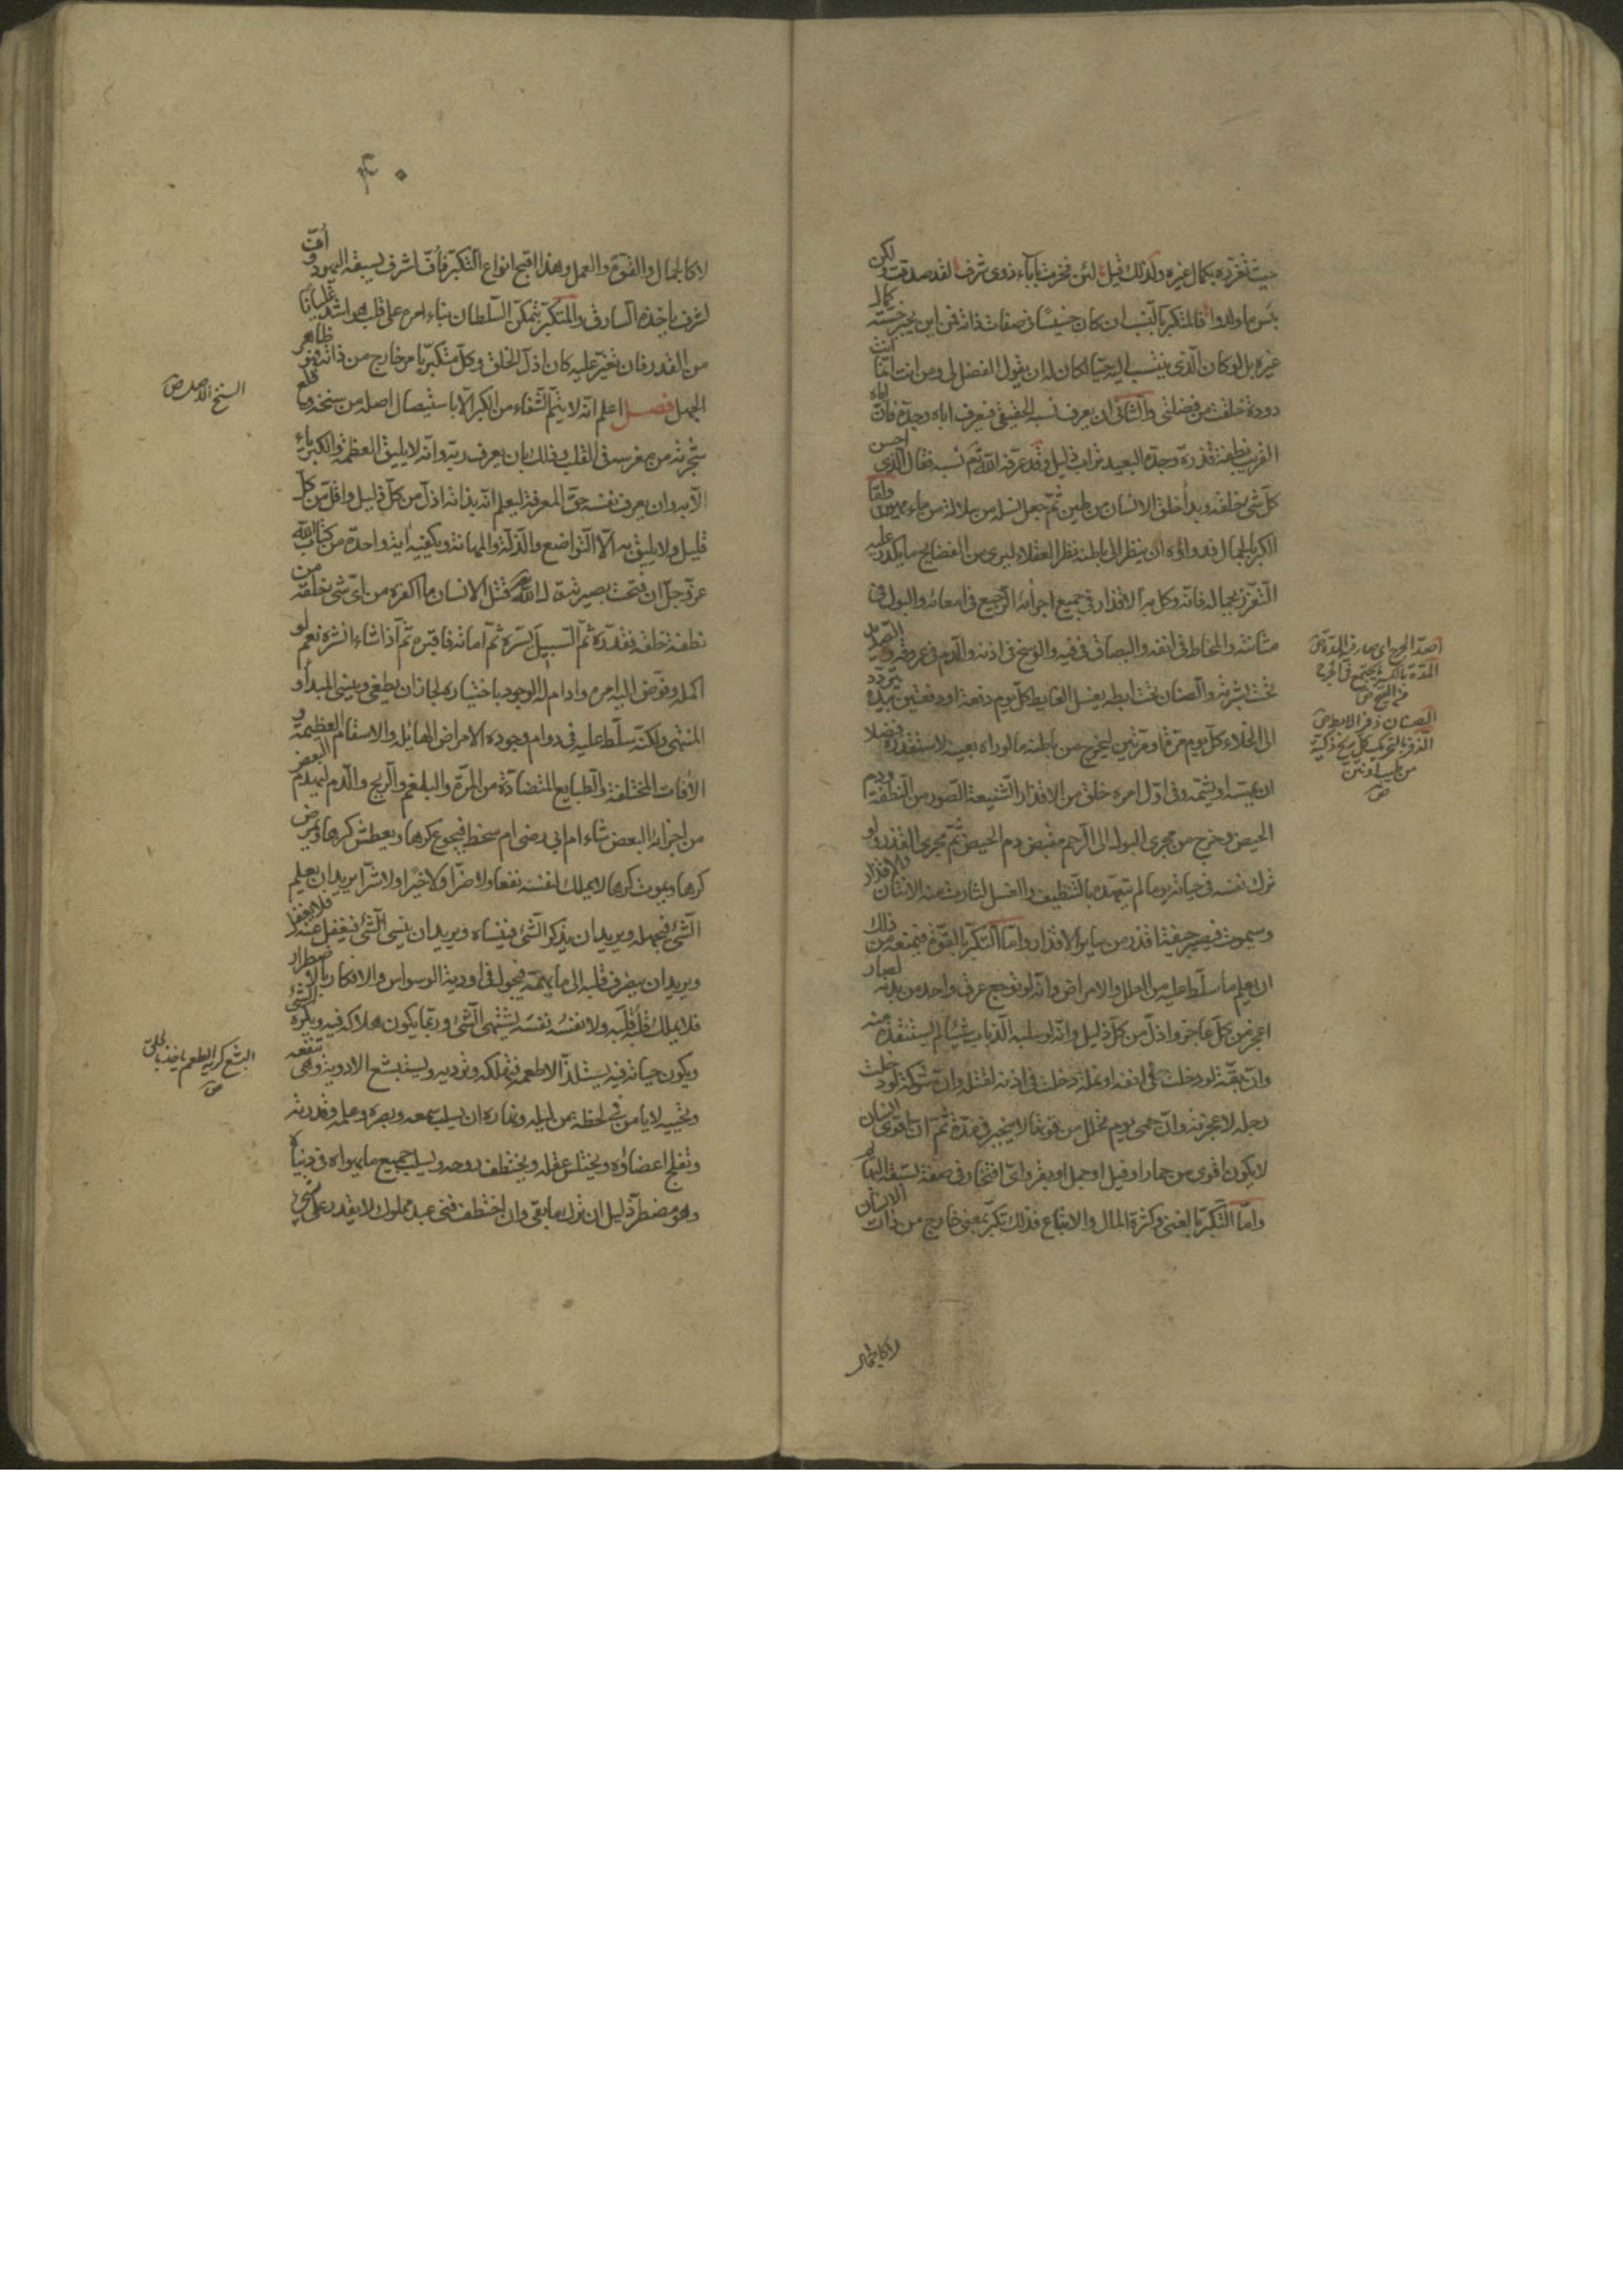 حيث تعززه بكمال غيره ولذلك قيل لئن فخرت بآباء ذوي شرف لقد صدقت ولكن
بئس ما ولدوا فالمتكبر بالنسب ان كان خسيسا في صفات ذاته فمن اين يجبر خسته كمال
غيره بل لو كان الذي ينتسب اليه حيا لكان له ان يقول الفضل لي ومن انت انما انت
دودة خلقت من فضلتي والثاني ان يعرف نسبه الحقيقي فيعرف اباه وجده فان اباه
القريب نطفة قذرة وجده البعيد تراب ذليل وقد عرفه الله تم نسبه فقال الذي احسن
كل شيء خلقه وبدأ خلق الانسان من طين ثم جعل نسله من سلالة من ماء مهين واما
الكبر بالجمال فدواؤه ان ينظر الى باطنه نظر العقلاء ليرى من الفضايح ما يكدر عليه
التعزز بجماله فانه وكل به الاقذار في جميع اجزائه الرجيع في امعائه والبول في
مثانته والمخاط في انفه والبصاق في فيه والوسخ في اذنه والدم في عروقه والصديد
تحت بشرته والصنان تحت ابطه يغسل الغايط كل يوم دفعة او دفعتين بيده يتردد
الى الخلاء كل يوم مرة او مرتين ليخرج من باطنه ما لو رآه بعينه لاستقذره فضلا
ان يمسه او يشمه وفي اول امره خلق من الاقذار الشنيعة الصور من النطفة ودم
الحيض وخرج من مجرى البول الى الرحم مفيض دم الحيض ثم مجرى القذر ولو
ترك نفسه في حياته يوما لم يتعهده بالتنظيف والغسل لثارت منه الانتان والاقذار
وسيموت فيصير جيفة اقذر من سائر الاقذار واما التكبر بالقوة فيمنعه من ذلك
ان يعلم ما سلط عليه من العلل والامراض وانه لو توجع عرق واحد من بدنه لصار
اعجز من كل عاجز واذل من كل ذليل وانه لو سلبه الذباب شيئا لم يستنقذه منه
وان بقة لو دخلت في انفه او نملة دخلت في اذنه لقتله وان شوكة لو دخلت
رجله لاعجزته وان حمى يوم تحلل من قوته ما لا ينجبر في مدة ثم ان اقوى انسان
لا يكون اقوى من حمار او فيل او جمل او بقر واي افتخار في صفة يسبقه البهائم
واما التكبر بالغنى وكثرة المال والاتباع فذلك تكبر بمعنى خارج من ذات الانسان
لا كالجمال
اصد الجرح اي صار فيه المدة ص
المدة بالكسر ما يجتمع في الجرح
من القيح ص
الصنان ذفر الابط ص
الذفر بالتحريك كل ريح ذكية
من طيب او نتن
ص
۴۰
لا كالجمال والقوة والعمل وهذا اقبح انواع التكبر فاف لشرف يسبقه اليهود واف
لشرف ياخذه السارق والمتكبر بتمكن السلطان بناء امره على قلب هو اشد غليانا
من القدر فان تغير عليه كان اذل الخلق وكل متكبر بامر خارج من ذاته فهو ظاهر
الجهل فصل اعلم انه لا يتم الشفاء من الكبر الا باستيصال اصله من سنخه وقلع
شجرته من مغرسه في القلب وذلك بان يعرف ربه وانه لا يليق العظمة والكبرياء
الا به وان يعرف نفسه حق المعرفة ليعلم انه بذاته اذل من كل ذليل واقل من كل
قليل ولا يليق به الا التواضع والذلة والمهانة ويكفيه آية واحدة من كتاب الله
عز وجل ان فتحت بصيرته قال الله تعالى قتل الانسان ما اكفره من اي شيء خلقه من
نطفة خلقه فقدره ثم السبيل يسره ثم اماته فاقبره ثم اذا شاء انشره نعم لو
اكمله وفوض اليه امره وادام له الوجود باختياره لجاز ان يطغى وينسى المبدأ و
المنتهى ولكنه سلط عليه في دوام وجوده الامراض الهايلة والاسقام العظيمة و
الآفات المختلفة والطبايع المتضادة من المرة والبلغم والريح والدم ليهدم البعض
من اجزائه البعض شاء ام ابى رضي ام سخط فيجوع كرها ويعطش كرها ويمرض
كرها ويموت كرها لا يملك لنفسه نفعا ولا ضرا ولا خيرا ولا شرا يريد ان يعلم
الشيء فيجهله ويريد ان يذكر الشيء فينساه ويريد ان ينسى الشيء فيغفل عنه فلا يغفل
ويريد ان يصرف قلبه الى ما يهمه فيجول في اودية الوسواس والافكار بالاضطرار
فلا يملك قلبه قلبه ولا نفسه نفسه يشتهي الشيء وربما يكون هلاكه فيه ويكره الشيء
ويكون حياته فيه يستلذ الاطعمة فتهلكه وتؤذيه ويستبشع الادوية وهي تنفعه
وتحييه لا يامن في لحظة من ليله ونهاره ان يسلب سمعه وبصره وعلمه وقدرته
وتفلج اعضاؤه ويختلس عقله ويختطف روحه ويسلب جميع ما يهواه في دنياه
وهو مضطر ذليل ان ترك ما بقي وان اختطف فني عبد مملوك لا يقدر على شيء
السنخ الاصل ص
البشع كريه الطعم ياخذ بالحلق
ص